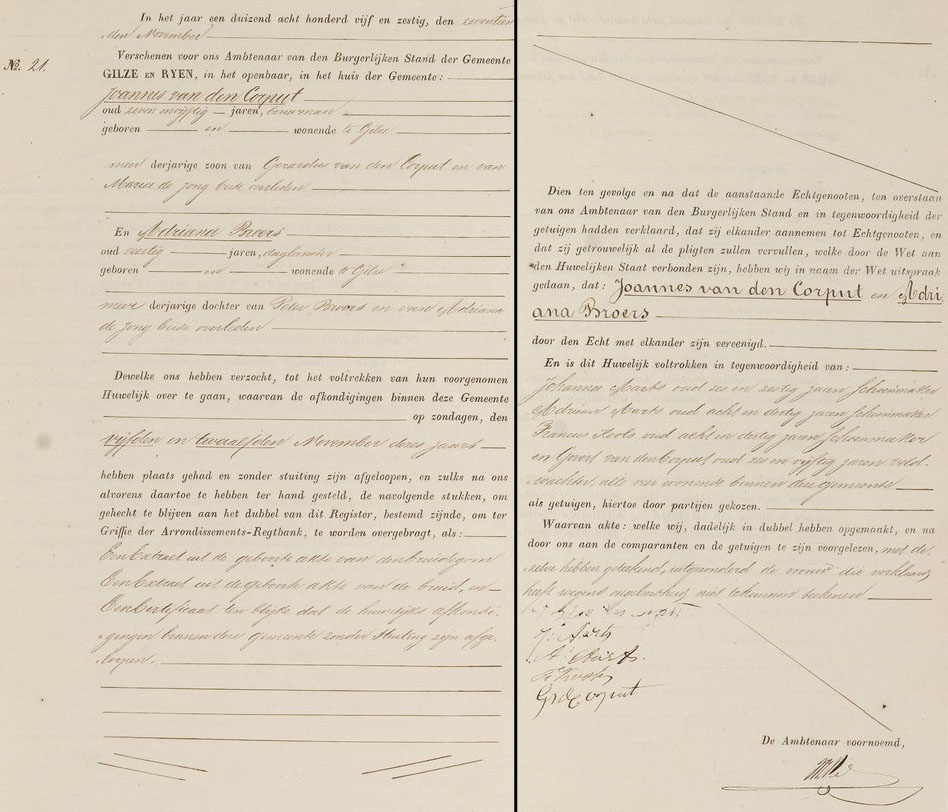 In het jaar een duizend acht honderd vijf en zestig, den zeventien
den November
No. 21.
Verschenen voor ons Ambtenaar van den Burgerlijken Stand der Gemeente
GILZE EN RYEN, in het openbaar, in het huis der Gemeente:
Joannes van den Corput
oud zeven en vijftig jaren, bouwman
geboren en wonende te Gilze
meer derjarige zoon van Gerardus van den Corput en van
Maria de Jong beide overleden
En Adriana Broers
oud veertig jaren, dagloonster
geboren en wonende te Gilze
meer derjarige dochter van Peter Broers en van Adriana
de Jong beide overleden
Dewelke ons hebben verzocht, tot het voltrekken van hun voorgenomen
Huwelijk over te gaan, waarvan de afkondigingen binnen deze Gemeente
op zondagen, den
vijfden en twaalfden November dezes jaars
hebben plaats gehad en zonder stuiting zijn afgeloopen, en zulks na ons
alvorens daartoe te hebben ter hand gesteld, de navolgende stukken, om
gehecht te blijven aan het dubbel van dit Register, bestemd zijnde, om ter
Griffie der Arrondissements-Regtbank, te worden overgebragt, als:
Een Extract uit de geboorte akte van den bruidegom
Een Extract uit de geboorte akte van de bruid, en
Een Certificaat ten blijke dat de huwelijks afkondi-
gingen binnen deze gemeente zonder stuiting zijn afge-
loopen.
Dien ten gevolge en na dat de aanstaande Echtgenooten, ten overstaan
van ons Ambtenaar van den Burgerlijken Stand en in tegenwoordigheid der
getuigen hadden verklaard, dat zij elkander aannemen tot Echtgenooten, en
dat zij getrouwelijk al de pligten zullen vervullen, welke door de Wet aan
den Huwelijken Staat verbonden zijn, hebben wij in naam der Wet uitspraak
gedaan, dat: Joannes van den Corput en Adri
ana Broers
door den Echt met elkander zijn vereenigd.
En is dit Huwelijk voltrokken in tegenwoordigheid van:
Johannes Aarts oud zes en zestig jaren schoenmaker
Adriaan Aarts oud acht en dertig jaren schoenmaker
Francus oud acht en dertig jaren schoenmaker
en Govert van den Corput, oud zes en vijftig jaren veld
wachter, alle vier wonende binnen deze gemeente
als getuigen, hiertoe door partijen gekozen.
Waarvan akte: welke wij, dadelijk in dubbel hebben opgemaakt, en na
door ons aan de comparanten en de getuigen te zijn voorgelezen, met de-
zelve hebben geteekend, uitgezonderd de vrouw die verklaard
heeft wegens ongeleerdheid niet te kunnen teekenen
J: Aarts
A: Aarts.
G vd Corput
De Ambtenaar voornoemd,